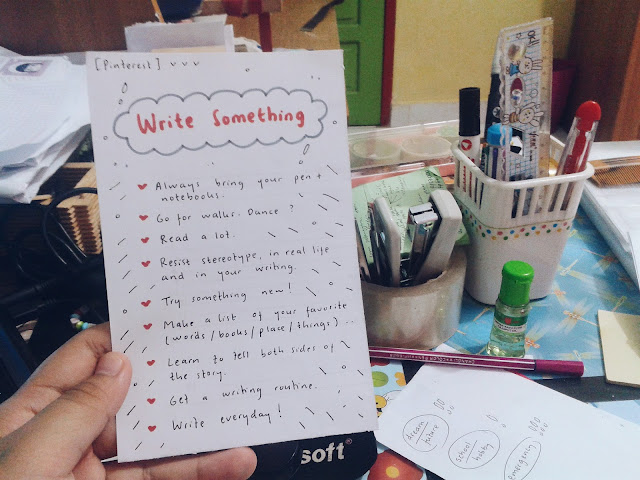 [Pinterest]
Write Something
Always bring your pen +
notebooks.
Go for walks. Dance?
Read a lot.
Resist stereotype, in real life
and in your writing.
Try something new!
Make a list of your favorite
(words/books/place/things)...
Learn to tell both sides of
the story.
Get a writing routine.
Write everyday!
soft
dream
future
school
hobby